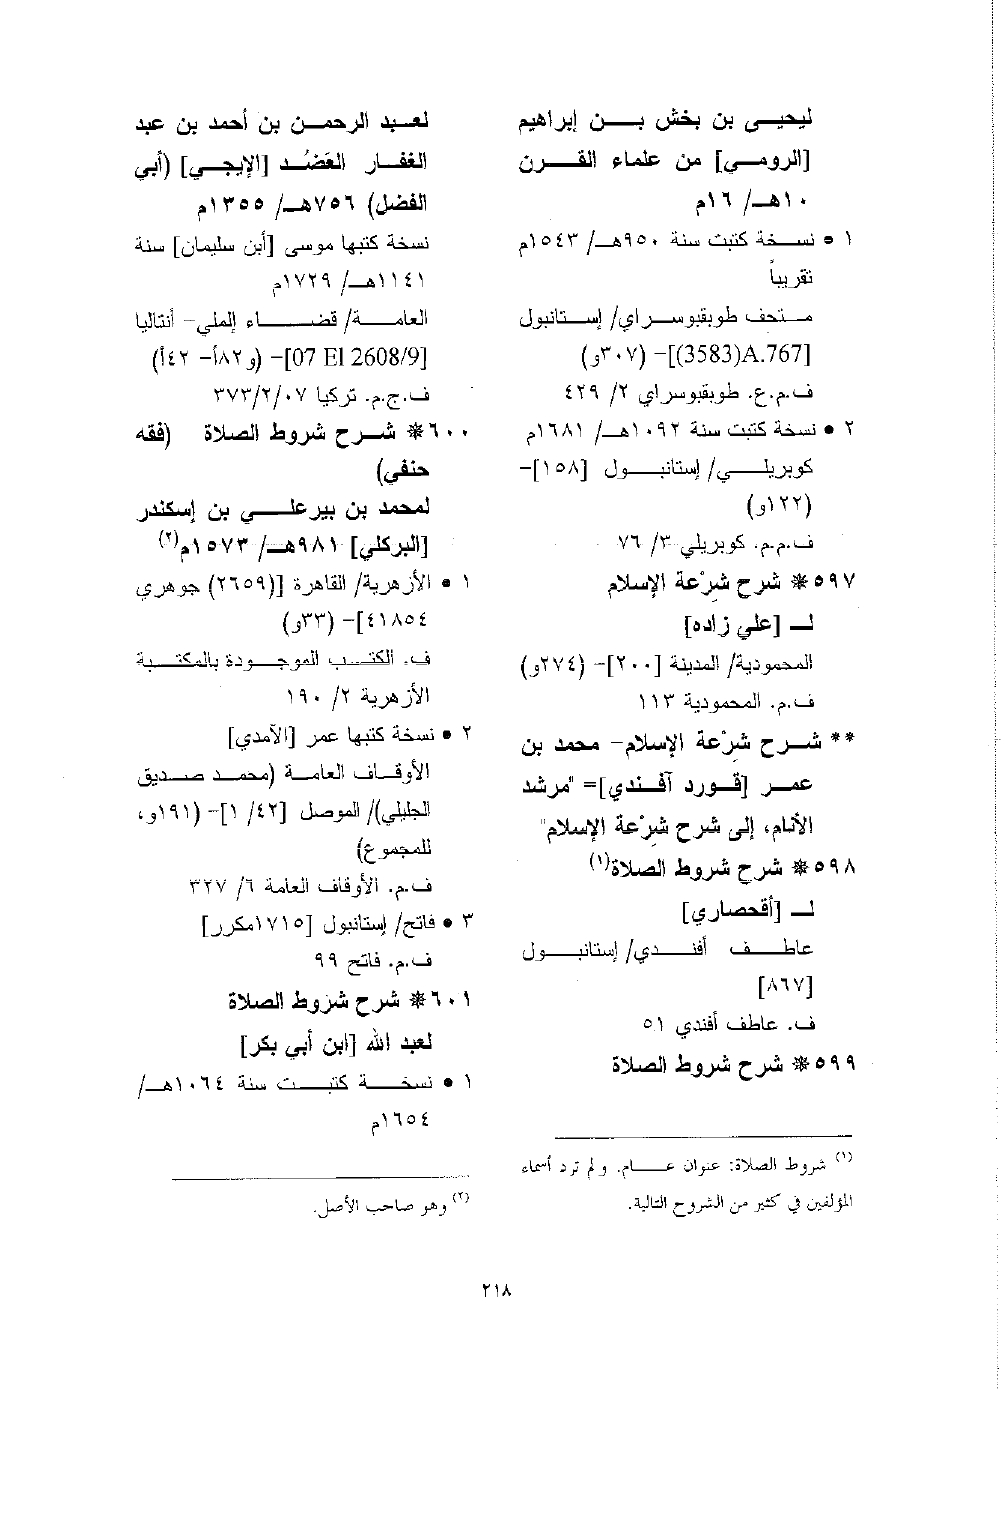 ليحيى بن بخش بن إبراهيم
[الرومي] من علماء القرن
١٠هـ/ ١٦م
١ • نسخة كتبت سنة ٩٥٠هـ/ ١٥٤٣م
تقريباً
متحف طوبقبوسراي/ إستانبول
[(3583)A.767]- (٣٠٧و)
ف.م.ع. طوبقبوسراي ٢/ ٤٢٩
٢ • نسخة كتبت سنة ١٠٩٢هـ/ ١٦٨١م
كوبريلي/ إستانبول [١٥٨]-
(١٢٢و)
ف.م.م. كوبريلي ٣/ ٧٦
٥٩٧* شرح شِرْعة الإسلام
لـ [علي زاده]
المحمودية/ المدينة [٢٠٠]- (٢٧٤و)
ف.م. المحمودية ١١٣
** شرح شِرْعة الإسلام- محمد بن
عمر [قورد آفندي]= "مرشد
الأنام، إلى شرح شِرْعة الإسلام"
٥٩٨* شرح شروط الصلاة(١)
لـ [أقحصاري]
عاطف أفندي/ إستانبول
[٨٦٧]
ف. عاطف أفندي ٥١
٥٩٩* شرح شروط الصلاة
(١) شروط الصلاة: عنوان عام. ولم ترد أسماء
المؤلفين في كثير من الشروح التالية.
لعبد الرحمن بن أحمد بن عبد
الغفار العَضُد [الإيجي] (أبي
الفضل) ٧٥٦هـ/ ١٣٥٥م
نسخة كتبها موسى [أبن سليمان] سنة
١١٤١هـ/ ١٧٢٩م
العامة/ قضاء إلملي- أنتاليا
[07 El 2608/9]- (و٢٨أ- ٤٢أ)
ف.ج.م. تركيا ٣٧٣/٢/٠٧
٦٠٠* شرح شروط الصلاة (فقه
حنفي)
لمحمد بن بيرعلي بن إسكندر
[البركلي] ٩٨١هـ/ ١٥٧٣م(٢)
١ • الأزهرية/ القاهرة [(٢٦٥٩) جوهري
٤١٨٥٤]- (٣٣و)
ف. الكتب الموجودة بالمكتبة
الأزهرية ٢/ ١٩٠
٢ • نسخة كتبها عمر [الآمدي]
الأوقاف العامة (محمد صديق
الجليلي)/ الموصل [٤٢/ ١]- (١٩١و،
للمجموع)
ف.م. الأوقاف العامة ٦/ ٣٢٧
٣ • فاتح/ إستانبول [١٧١٥مكرر]
ف.م. فاتح ٩٩
٦٠١* شرح شروط الصلاة
لعبد الله [ابن أبي بكر]
١ • نسخة كتبت سنة ١٠٦٤هـ/
١٦٥٤م
(٢) وهو صاحب الأصل.
٢١٨